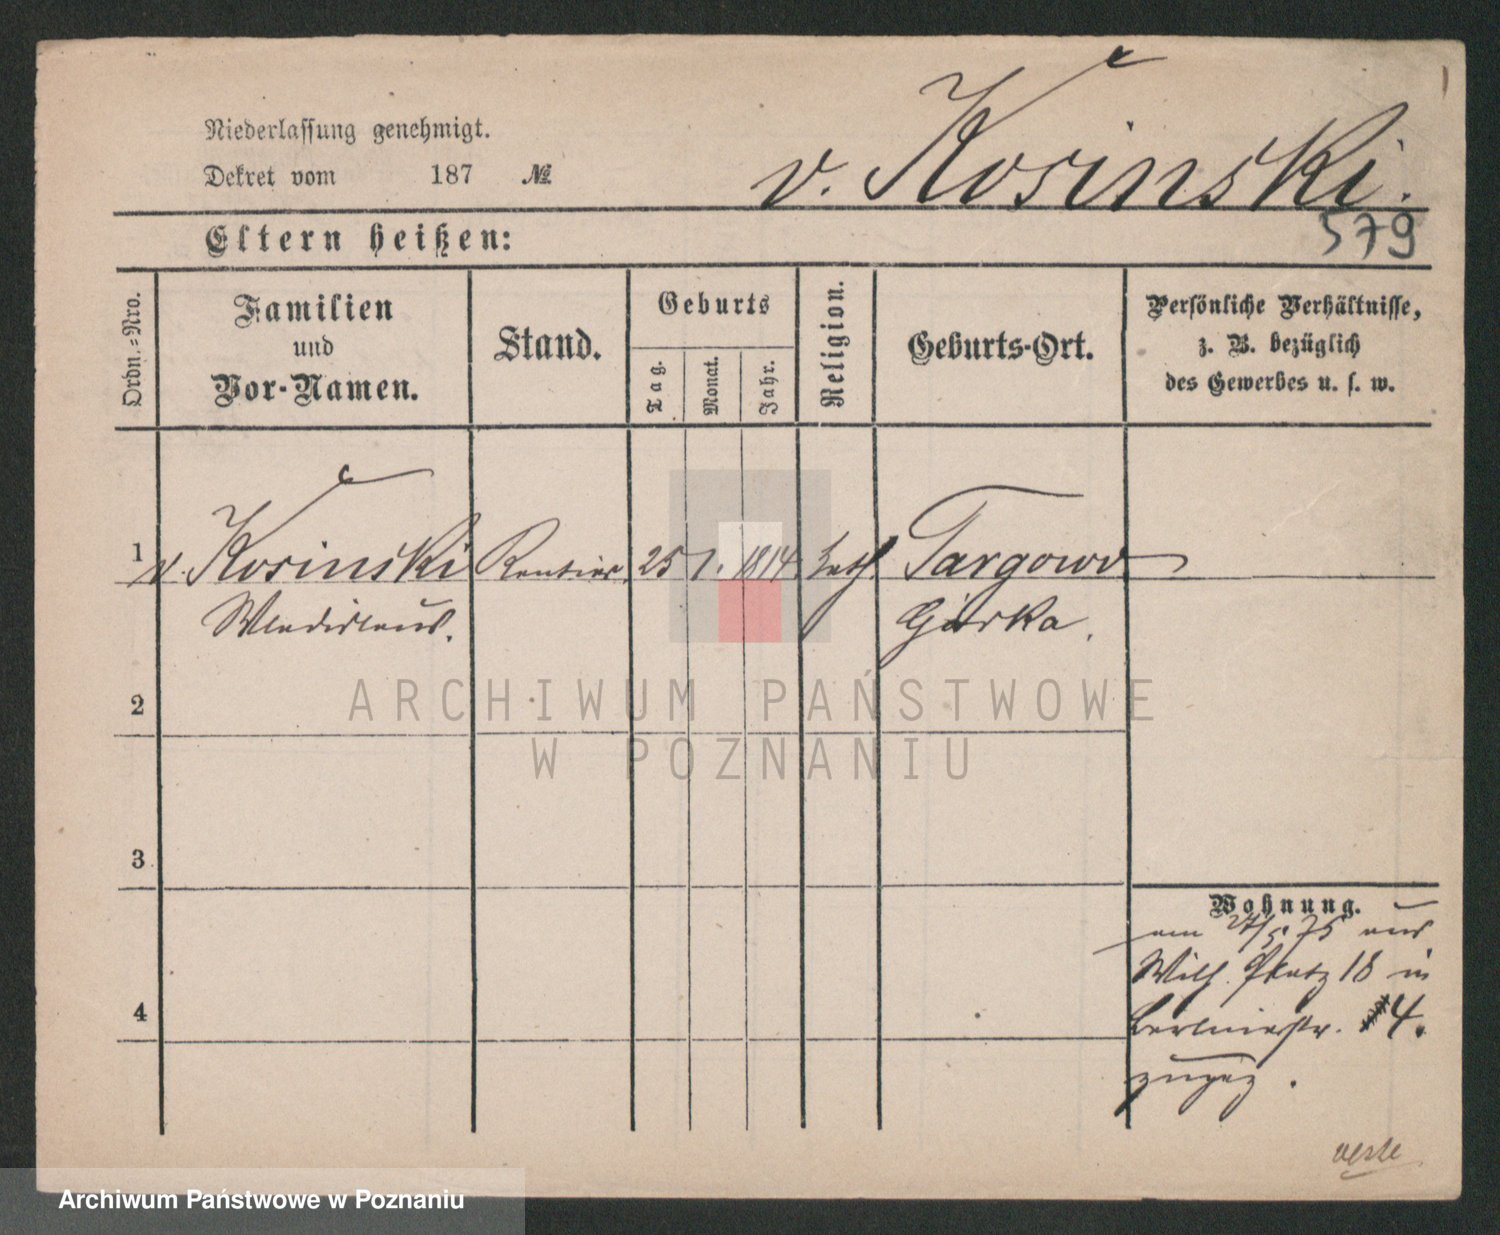 Niederlassung genehmigt.
Dekret vom 187 №
v. Kosinski.
579
Eltern heißen:
Ordn.-Nro.
Familien
und
Vor-Namen.
Stand.
Geburts
Tag.
Monat.
Jahr.
Religion.
Geburts-Ort.
Persönliche Verhältnisse,
z. B. bezüglich
des Gewerbes u. s. w.
1 v. Kosinski Rentier 25 1. 1814 kath Targowo
Wladislaus. Górka.
2
3
Wohnung.
am 27/5. 75 aus
Wilh. Platz 18 in
Berlinerstr. 4.
zugez.
4
ARCHIWUM PAŃSTWOWE
W POZNANIU
Archiwum Państwowe w Poznaniu